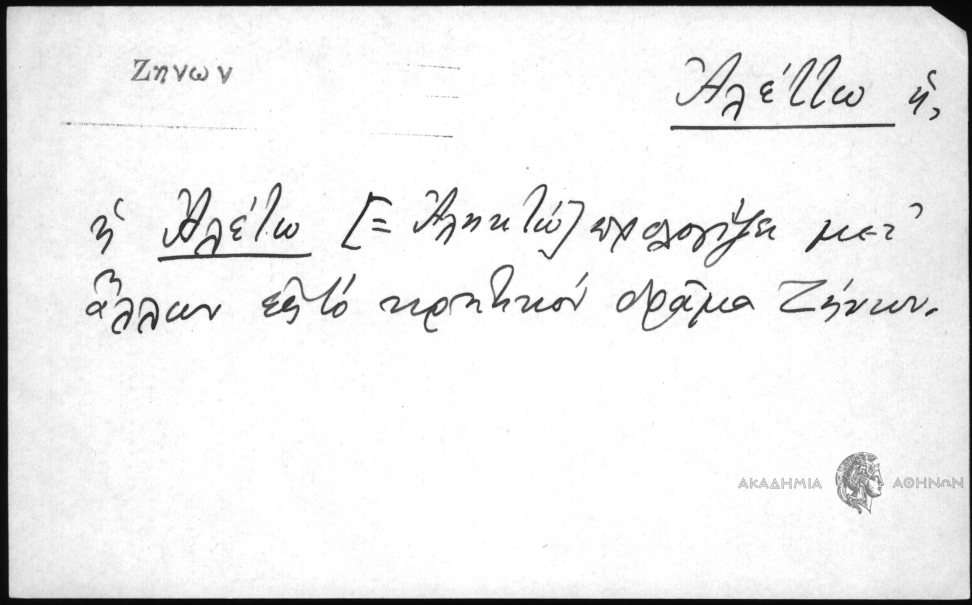 Ζηνων
Ἀλέττω ἡ,
ἡ Ἀλέτω [= Ἀληκτώ] προλογίζει μετ'
ἄλλων εἰς τὸ κρητικὸν δρᾶμα Ζήνων.
ΑΚΑΔΗΜΙΑ ΑΘΗΝΩΝ